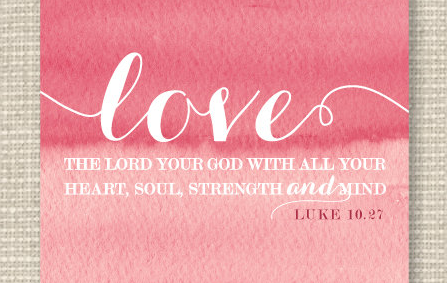 love
THE LORD YOUR GOD WITH ALL YOUR
HEART, SOUL, STRENGTH and MIND
LUKE 10.27